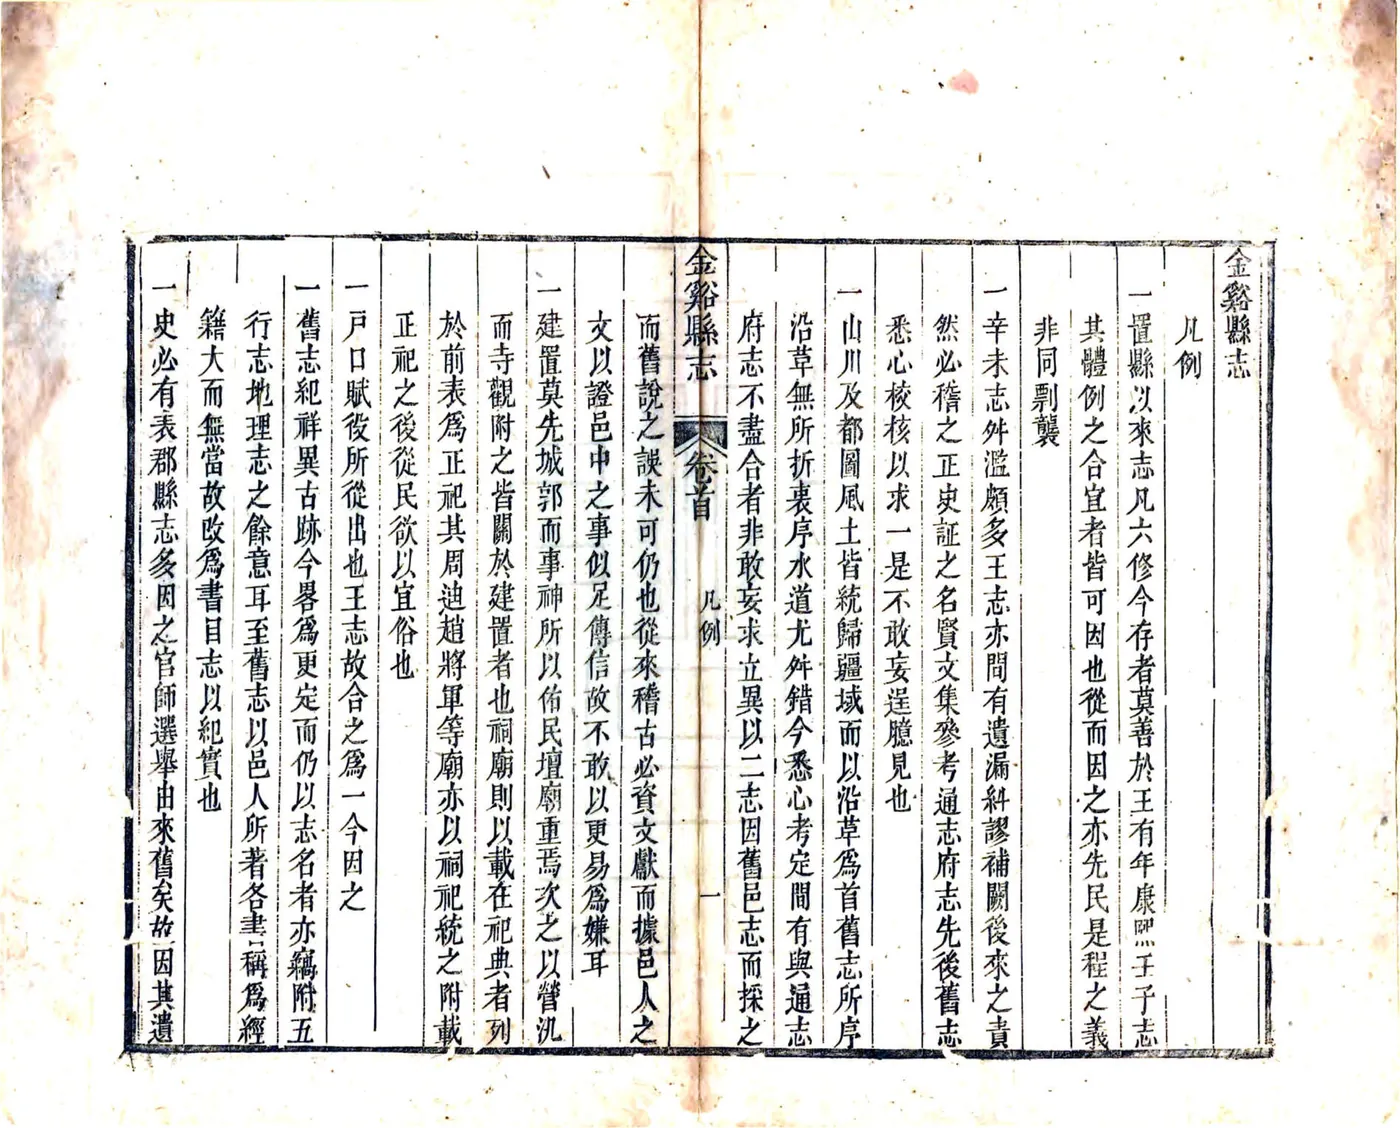 金谿縣志
凡例
一置縣以來志凡六修今存者莫善於王有年康熙壬子志
其體例之合宜者皆可因也從而因之亦先民是程之義
非同剽襲
一辛未志舛濫頗多王志亦間有遺漏糾謬補闕後來之責
然必稽之正史証之名賢文集參考通志府志先後舊志
悉心棱核以求一是不敢妄逞臆見也
一山川及都圖風土皆統歸疆域而以沿革爲首舊志所序
沿革無所折衷序水道尤舛錯今悉心考定間有與通志
府志不盡合者非敢妄求立異以二志因舊邑志而採之
金谿縣志
卷首
凡例
一
而舊說之誤未可仍也從來稽古必資文獻而據邑人之
文以證邑中之事似足傳信故不敢以更易爲嫌耳
一建置莫先城郭而事神所以佑民壇廟重焉次之以營汛
而寺觀附之皆關於建置者也祠廟則以載在祀典者列
於前表爲正祀其周迪趙將軍等廟亦以祠祀統之附載
正祀之後從民欲以宜俗也
一戸口賦役所從出也王志故合之爲一今因之
一舊志紀祥異古跡今畧爲更定而仍以志名者亦竊附五
行志地理志之餘意耳至舊志以邑人所著各書稱爲經
籍大而無當故改爲書目志以紀實也
一史必有表郡縣志多因之官師選舉由來舊矣故因其遺